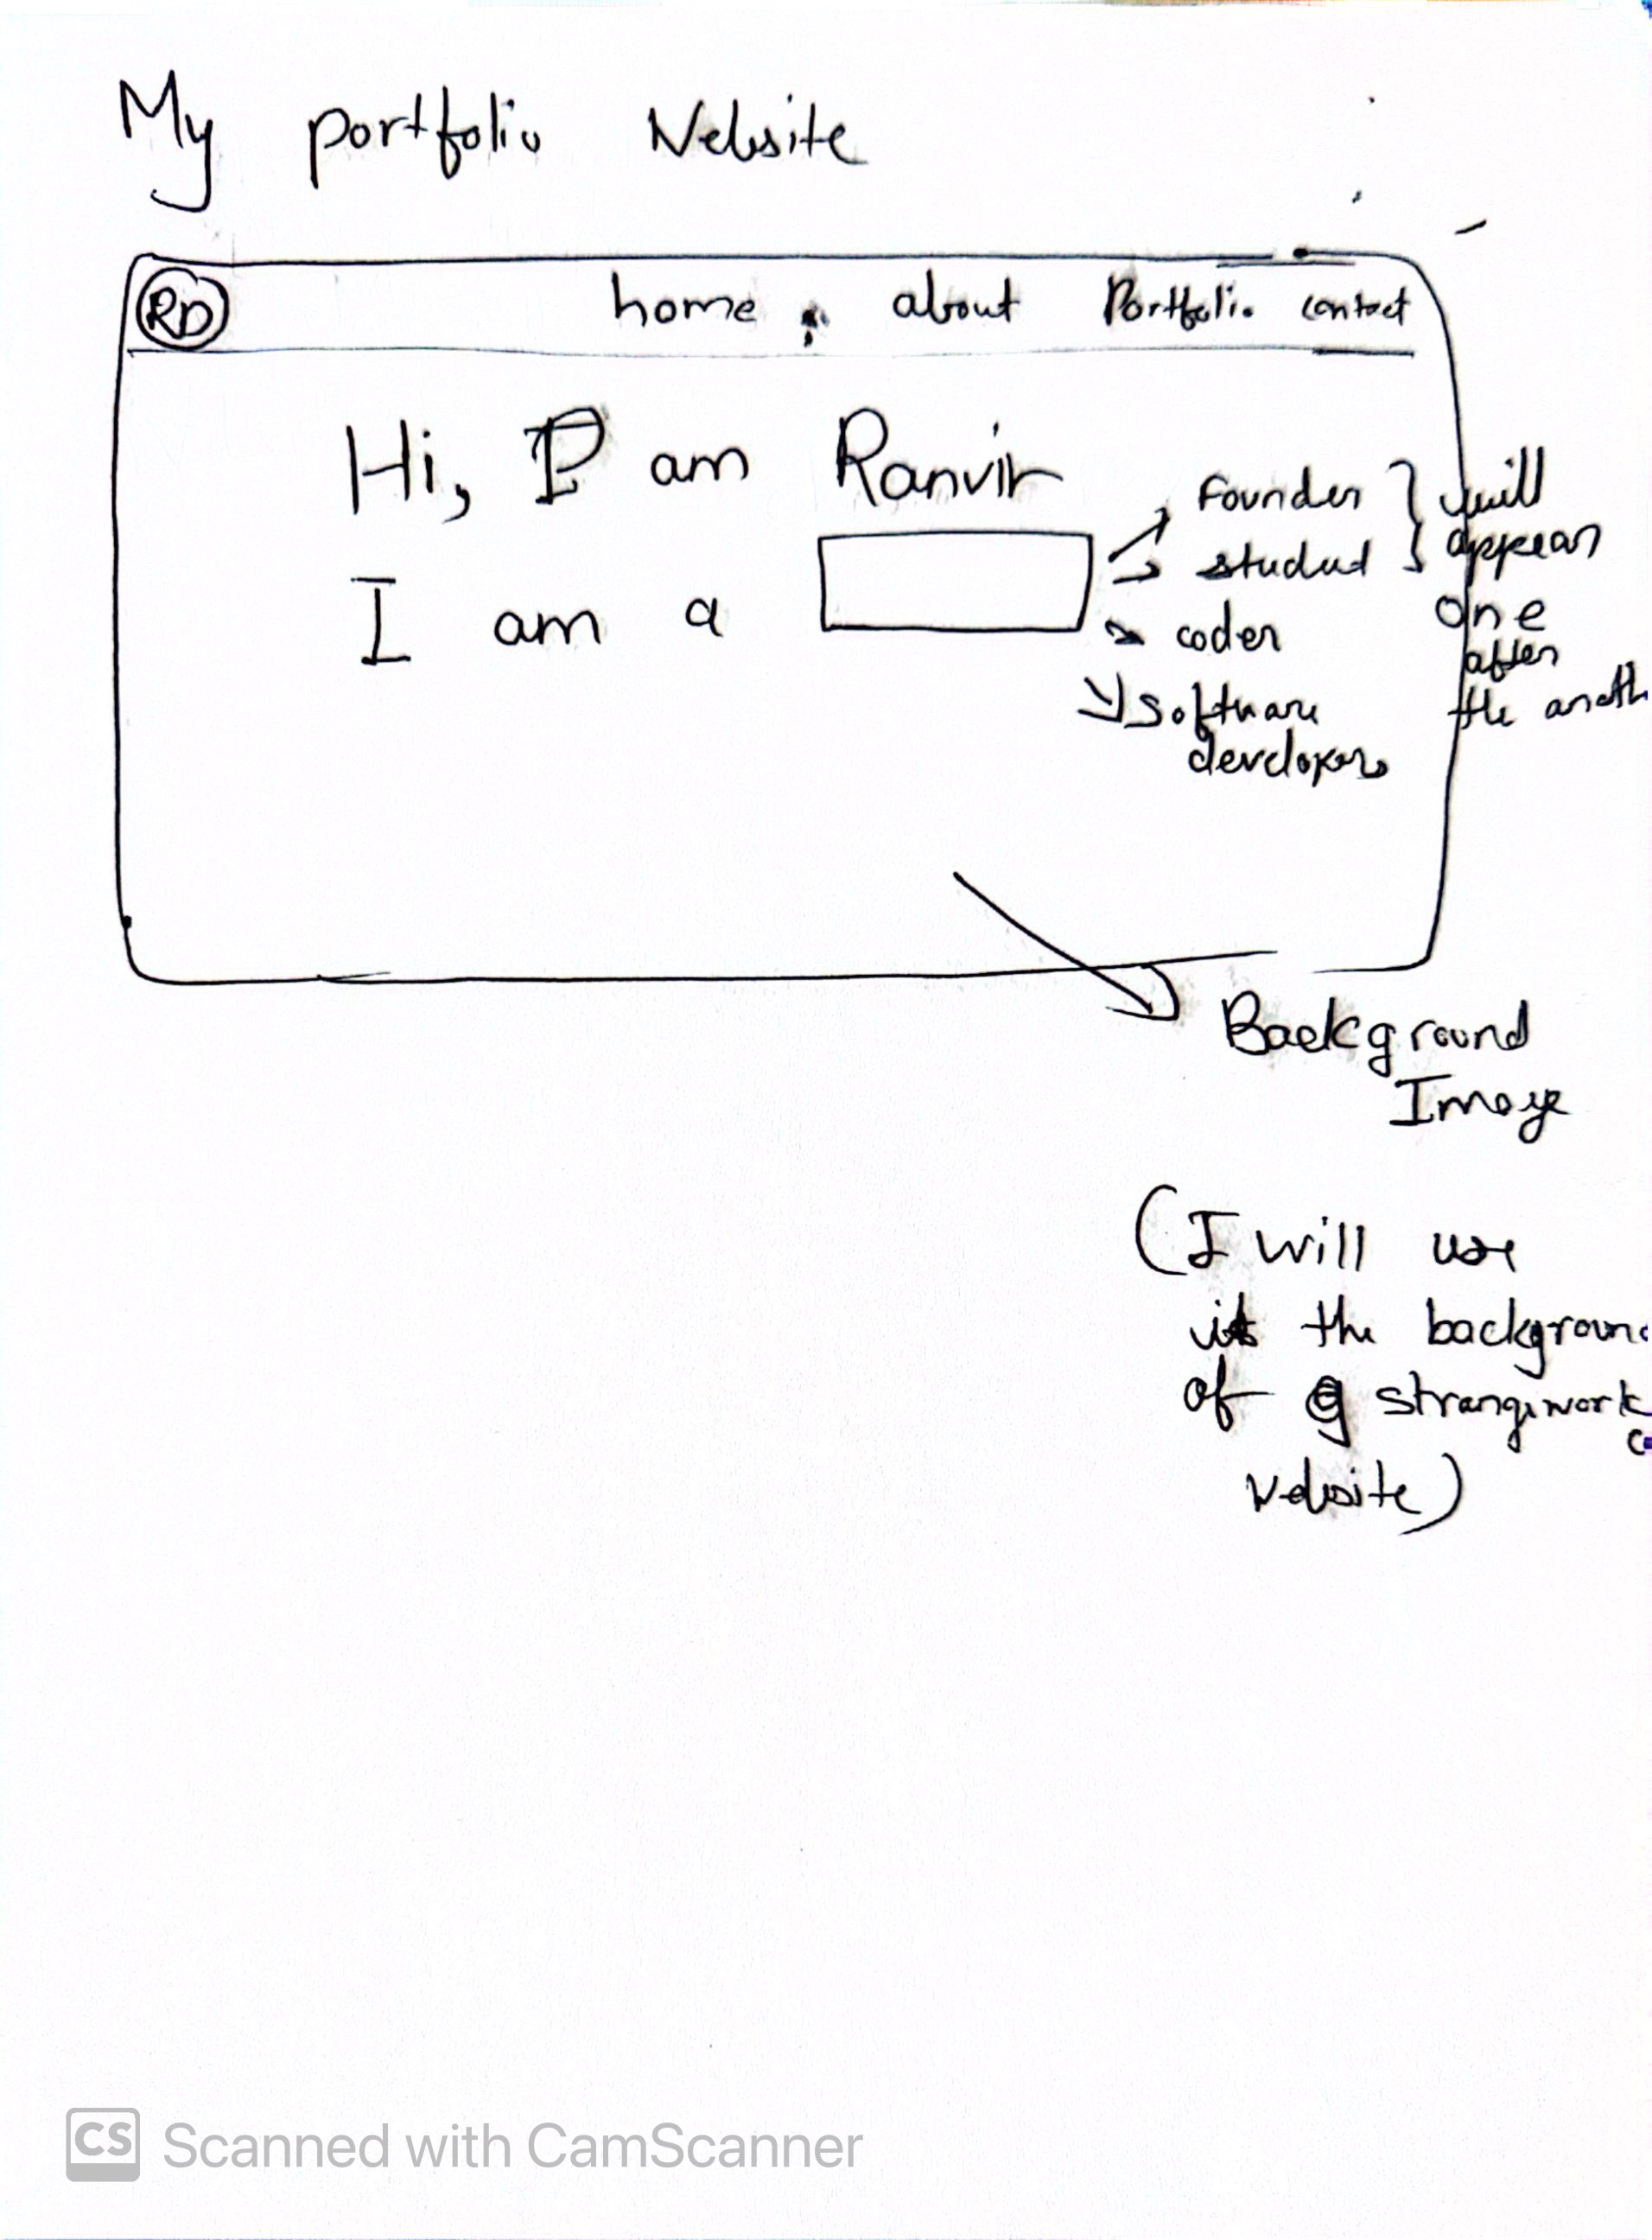 My portfolio Website
RD home about Portfolio contact
Hi, I am Ranvir
I am a
Founder
student
coder
Software
developer
will
appear
one
after
the anoth
Background
Image
(I will use
it the backgroun
of strangework
website)
CS Scanned with CamScanner